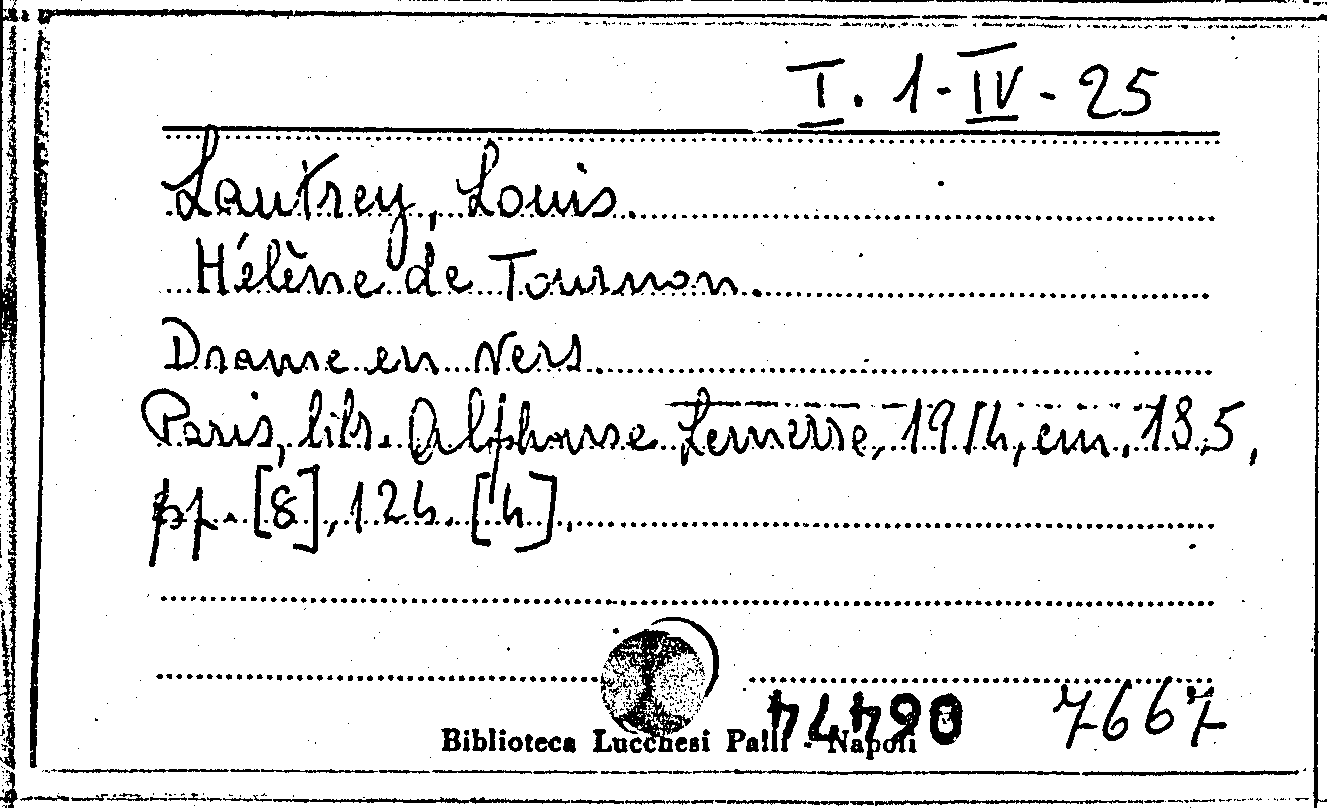 I. 1-IV-25
Lautrey, Louis.
Hélène de Tournon.
Drame en vers.
Paris, libr. Alphonse Lemerre, 1914, cm. 18,5,
pp. [8], 124. [4].
7667
Biblioteca Lucchesi Palli - Napoli